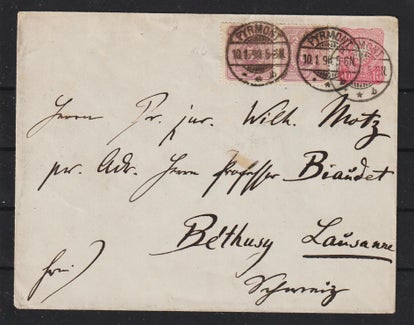 PYRMONT
10.1.90.5-6N.
PYRMONT
10.1.90.5-6N.
Herrn Dr. jur. Wilh. Motz
pr. Adr. Herrn Professor Biaudet
Béthusy Lausanne
frei) Schweiz